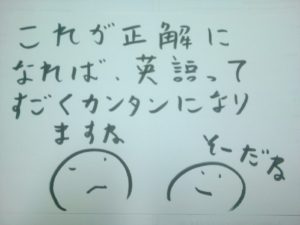 これが正解に
なれば、英語って
すごくカンタンになり
ますね
そーだね